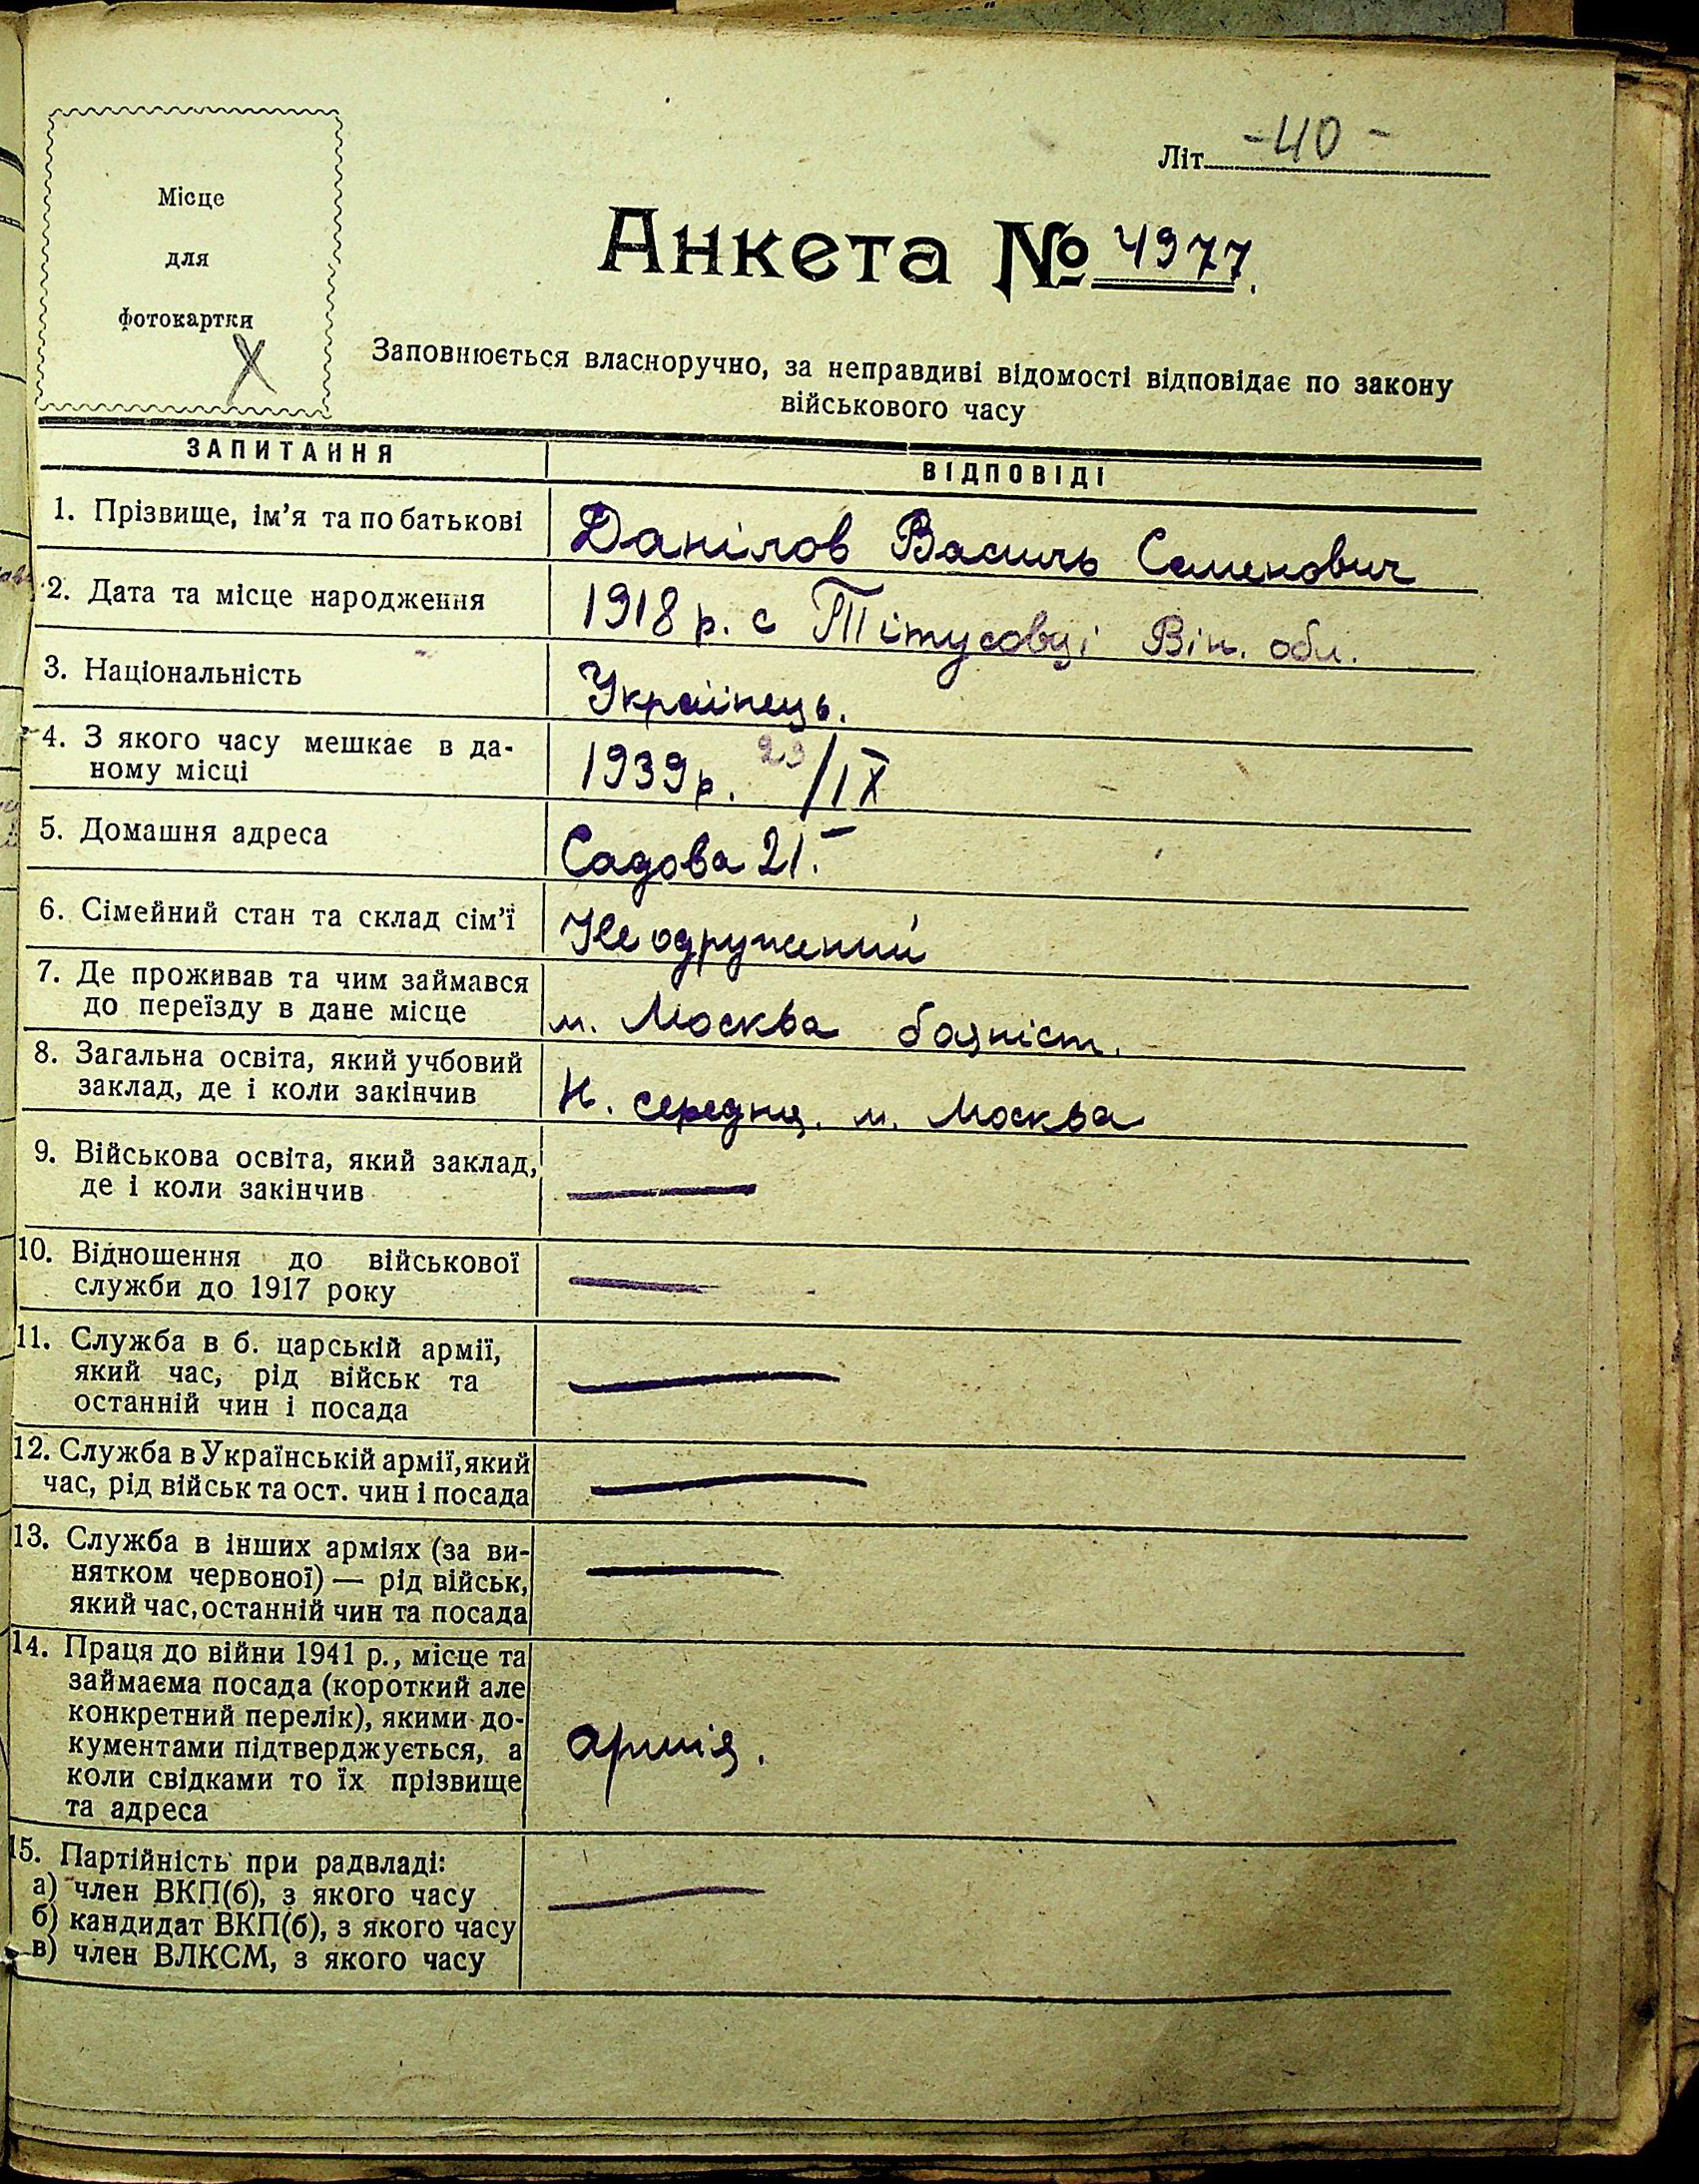 Літ. -40-
Місце
для
фотокартки
X
Анкета № 4977.
Заповнюється власноручно, за неправдиві відомості відповідає по закону
військового часу
ЗАПИТАННЯ ВІДПОВІДІ
1. Прізвище, ім'я та по батькові Данілов Василь Семенович
2. Дата та місце народження 1918 р. с Тітусовці Він. обл.
3. Національність Українець.
4. З якого часу мешкає в да-
ному місці 1939р. 29/IX
5. Домашня адреса Садова 21.
6. Сімейний стан та склад сім'ї Не одружений
7. Де проживав та чим займався
до переїзду в дане місце м. Москва баяніст.
8. Загальна освіта, який учбовий
заклад, де і коли закінчив Н. середня. м. Москва
9. Військова освіта, який заклад,
де і коли закінчив —
10. Відношення до військової
служби до 1917 року —
11. Служба в б. царській армії,
який час, рід військ та
останній чин і посада —
12. Служба в Українській армії, який
час, рід військ та ост. чин і посада —
13. Служба в інших арміях (за ви-
нятком червоної) — рід військ,
який час, останній чин та посада —
14. Праця до війни 1941 р., місце та
займаєма посада (короткий але
конкретний перелік), якими до-
кументами підтверджується, а
коли свідками то їх прізвище
та адреса армія.
15. Партійність при радвладі:
а) член ВКП(б), з якого часу —
б) кандидат ВКП(б), з якого часу
в) член ВЛКСМ, з якого часу